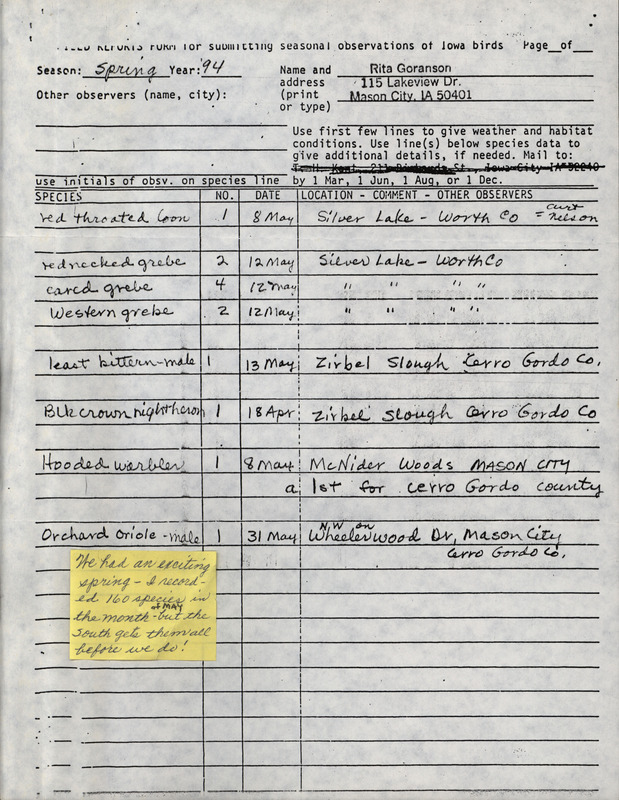 FIELD REPORTS FORM for submitting seasonal observations of Iowa birds Page__of__
Season: Spring Year: '94
Name and address (print or type)
Rita Goranson
115 Lakeview Dr.
Mason City, IA 50401
Other observers (name, city):
Use first few lines to give weather and habitat
conditions. Use line(s) below species data to
give additional details, if needed. Mail to:
T.H. Kent, 211 Richards St., Iowa City IA 52240
by 1 Mar, 1 Jun, 1 Aug, or 1 Dec.
use initials of obsv. on species line
SPECIES NO. DATE LOCATION - COMMENT - OTHER OBSERVERS
red throated loon 1 8 May Silver Lake - Worth Co = curt nelson
rednecked grebe 2 12 May Silver Lake - Worth Co
eared grebe 4 12 May " " " "
Western grebe 2 12 May " " " "
least bittern-male 1 13 May Zirbel Slough Cerro Gordo Co.
Blk crown nightheron 1 18 Apr Zirbel Slough Cerro Gordo Co
Hooded warbler 1 8 May McNider Woods MASON CITY
a 1st for Cerro Gordo County
Orchard Oriole - male 1 31 May NW on Wheelerwood Dr, Mason City
Cerro Gordo Co.
We had an exciting
spring - I record-
ed 160 species in
the month of MAY - but the
South gets them all
before we do!